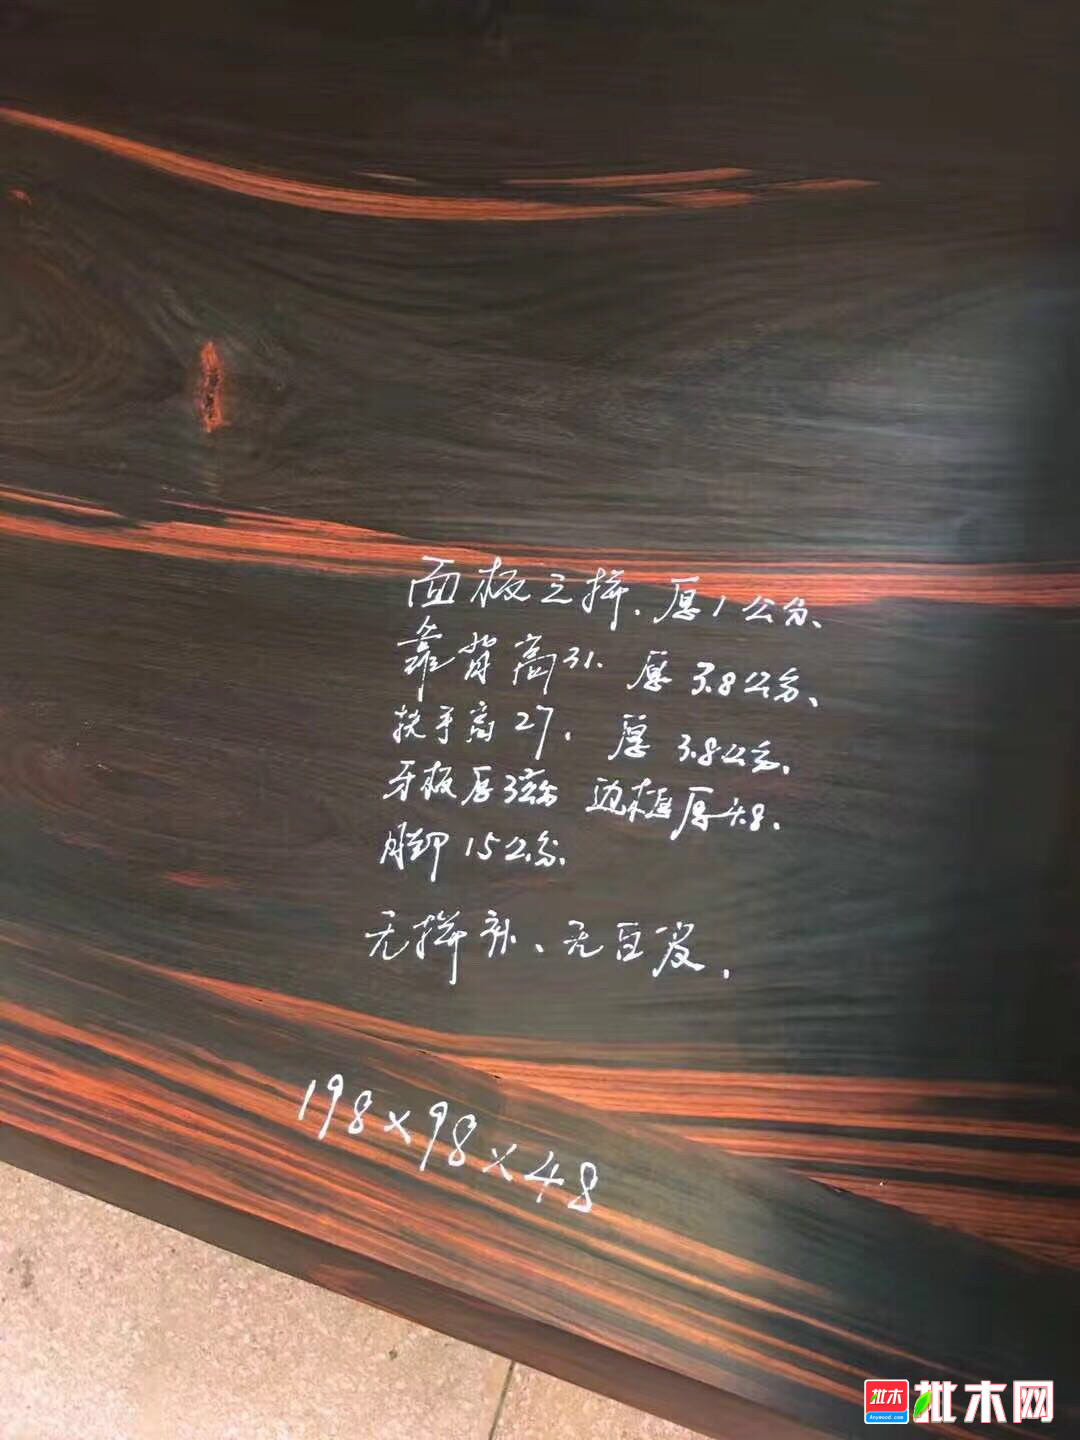 面板三拼.厚1公分、
靠背高31.厚3.8公分、
扶手高27.厚3.8公分.
牙板厚3公分 边框厚4.8.
脚 15公分.
无拼补、无白皮.
198×98×48
批木
Anywood.com
批木网